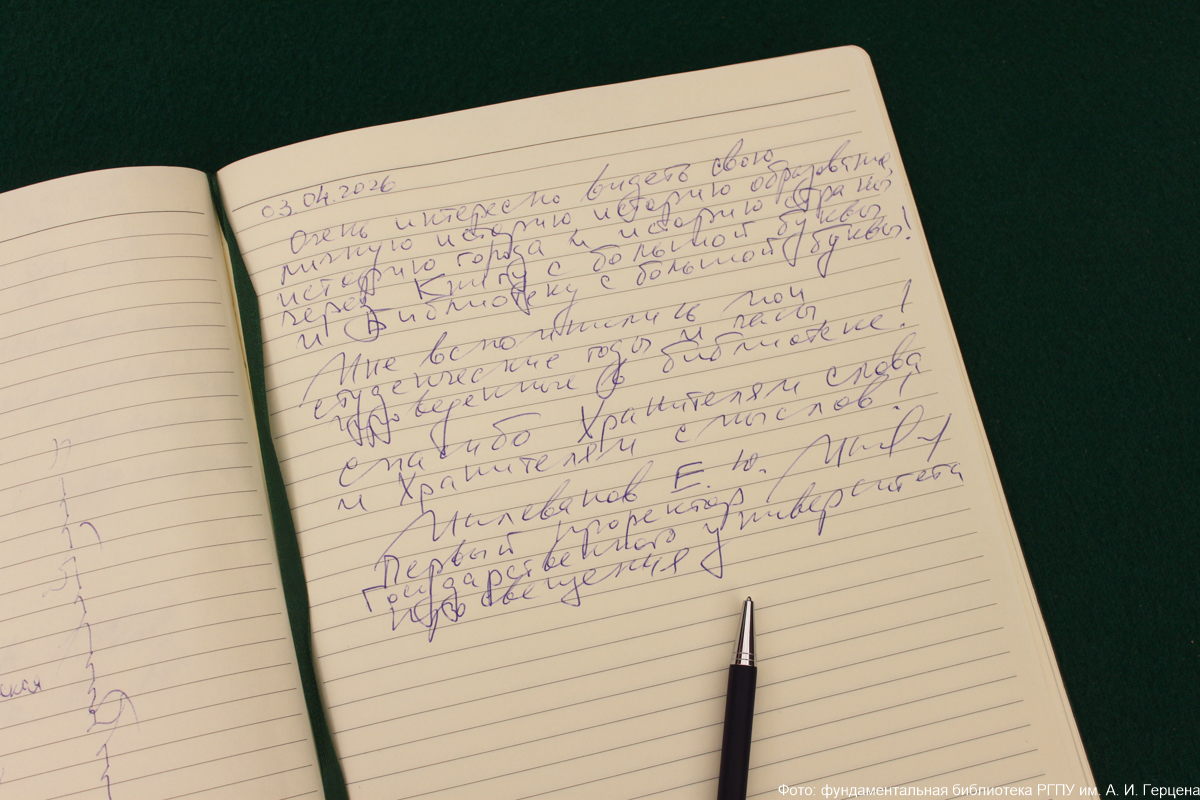 03.04.2026
Очень интересно видеть свою
личную историю историю образования,
историю города и историю страны
через Книгу с большой буквы
и Библиотеку с большой буквы!
Мне вспомнились мои
студенческие годы и часы,
проведенные в библиотеке!
Спасибо Хранителям слова
и Хранителям смыслов!
Милеванов Е. Ю.
Первый проректор
Государственного университета
просвещения
ская
Фото: фундаментальная библиотека РГПУ им. А. И. Герцена